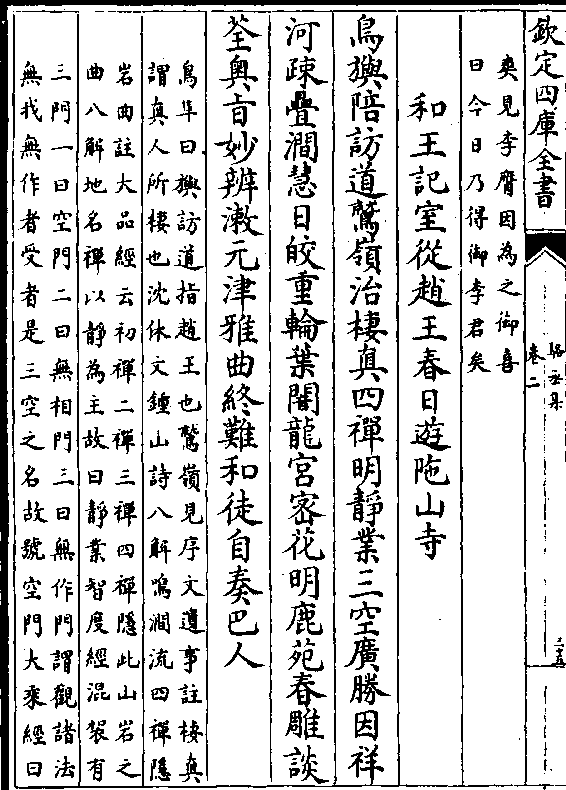 欽定四庫全書
卷二
奕見李膺因為之御喜
曰今日乃得御李君矣
和王記室從趙王春日遊陁山寺
鳥旟陪訪道鷲嶺治棲真四禪明靜業三空廣勝因祥
河疎疊澗慧日皎重輪葉闇龍宮密花明鹿苑春雕談
荃奥旨妙辨漱元津雅曲終難和徒自奏巴人
鳥隼曰旟訪道指趙王也鷲嶺見序文遺事註棲真
謂真人所棲也沈休文鍾山詩八解鳴澗流四禪隱
岩曲註大品經云初禪二禪三禪四禪隱此山岩之
曲八解地名禪以靜為主故曰靜業智度經混袈有
三門一曰空門二曰無相門三曰無作門謂觀諸法
無我無作者受者是三空之名故號空門大乘經曰